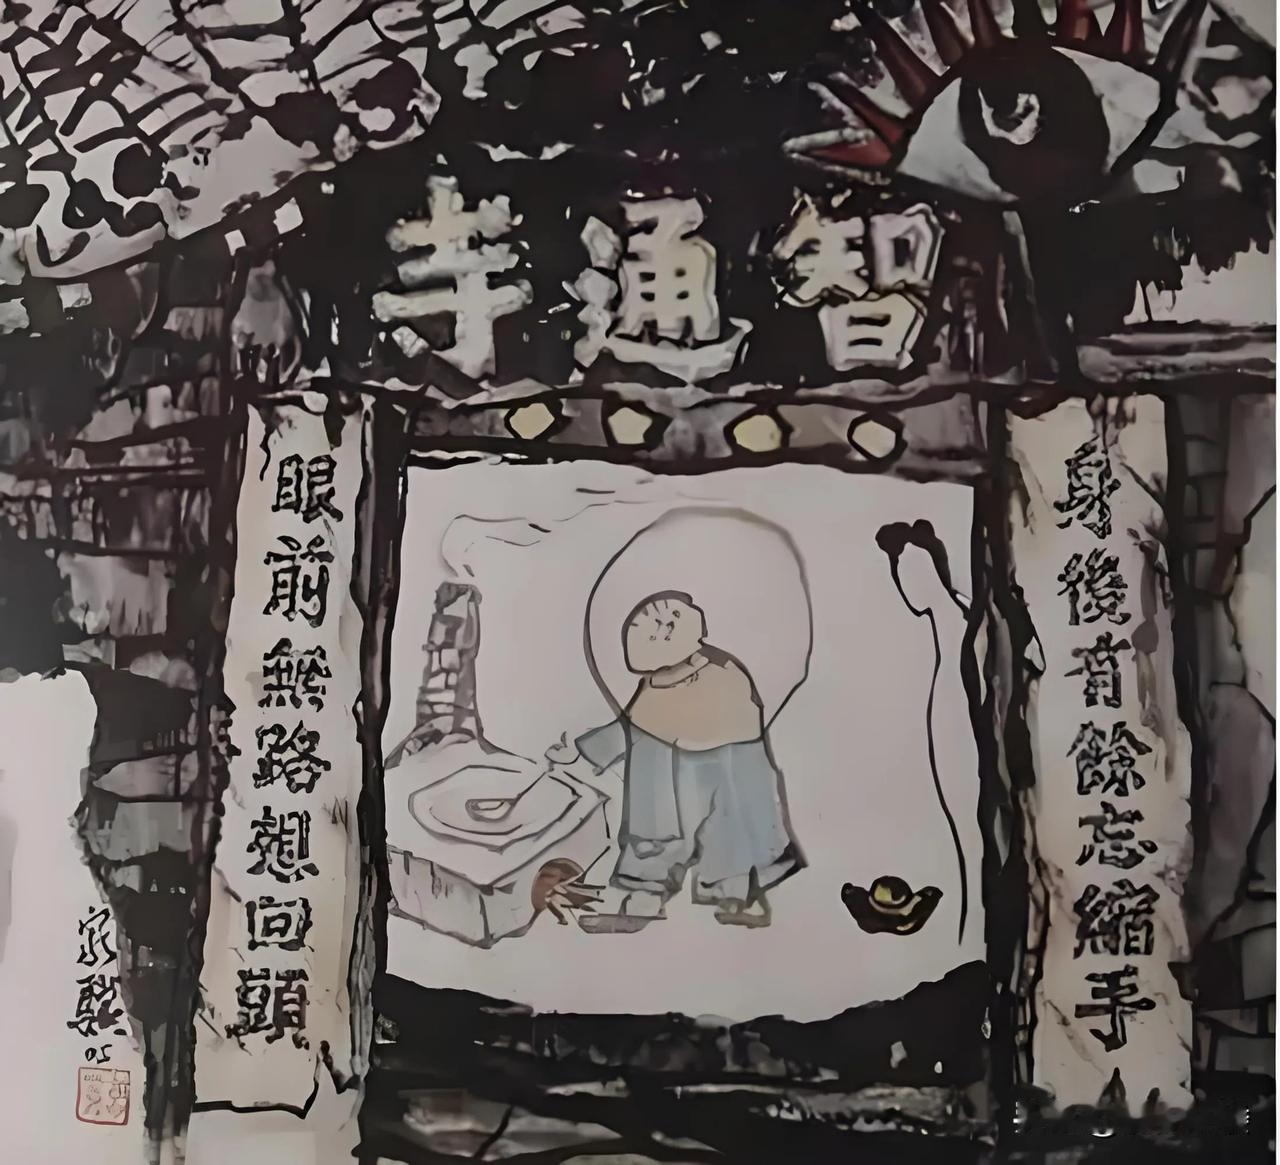 智通寺
身後有餘忘縮手
眼前無路想回頭
家
05